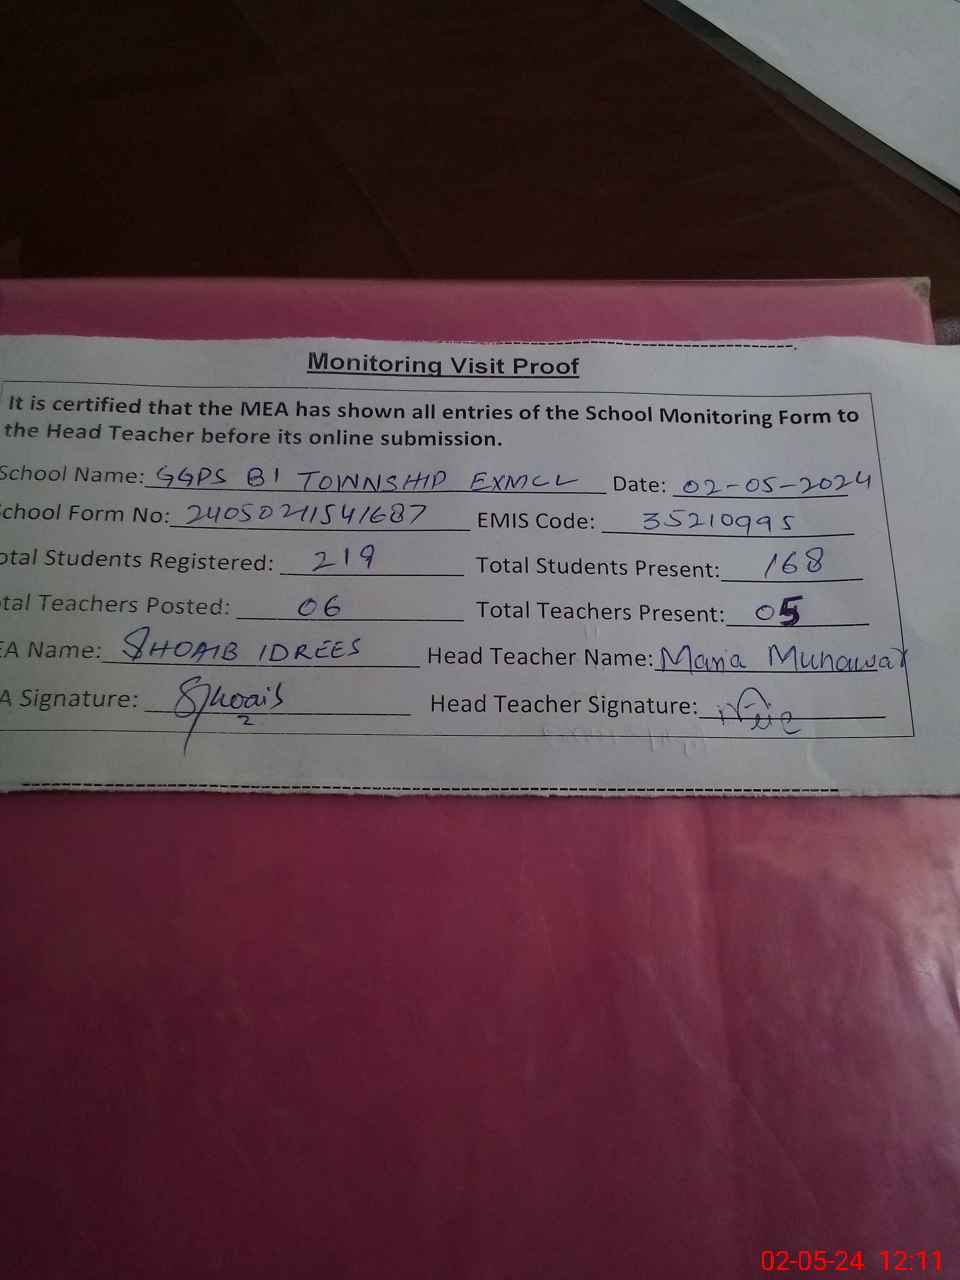 Monitoring Visit Proof
It is certified that the MEA has shown all entries of the School Monitoring Form to
the Head Teacher before its online submission.
School Name: GGPS B1 TOWNSHIP EXMCL Date: 02-05-2024
chool Form No: 24050211541687 EMIS Code: 35210995
otal Students Registered: 219 Total Students Present: 168
tal Teachers Posted: 06 Total Teachers Present: 05
EA Name: SHOAIB IDREES Head Teacher Name: Maria Munawar
A Signature: Shoaib Head Teacher Signature:
02-05-24 12:11